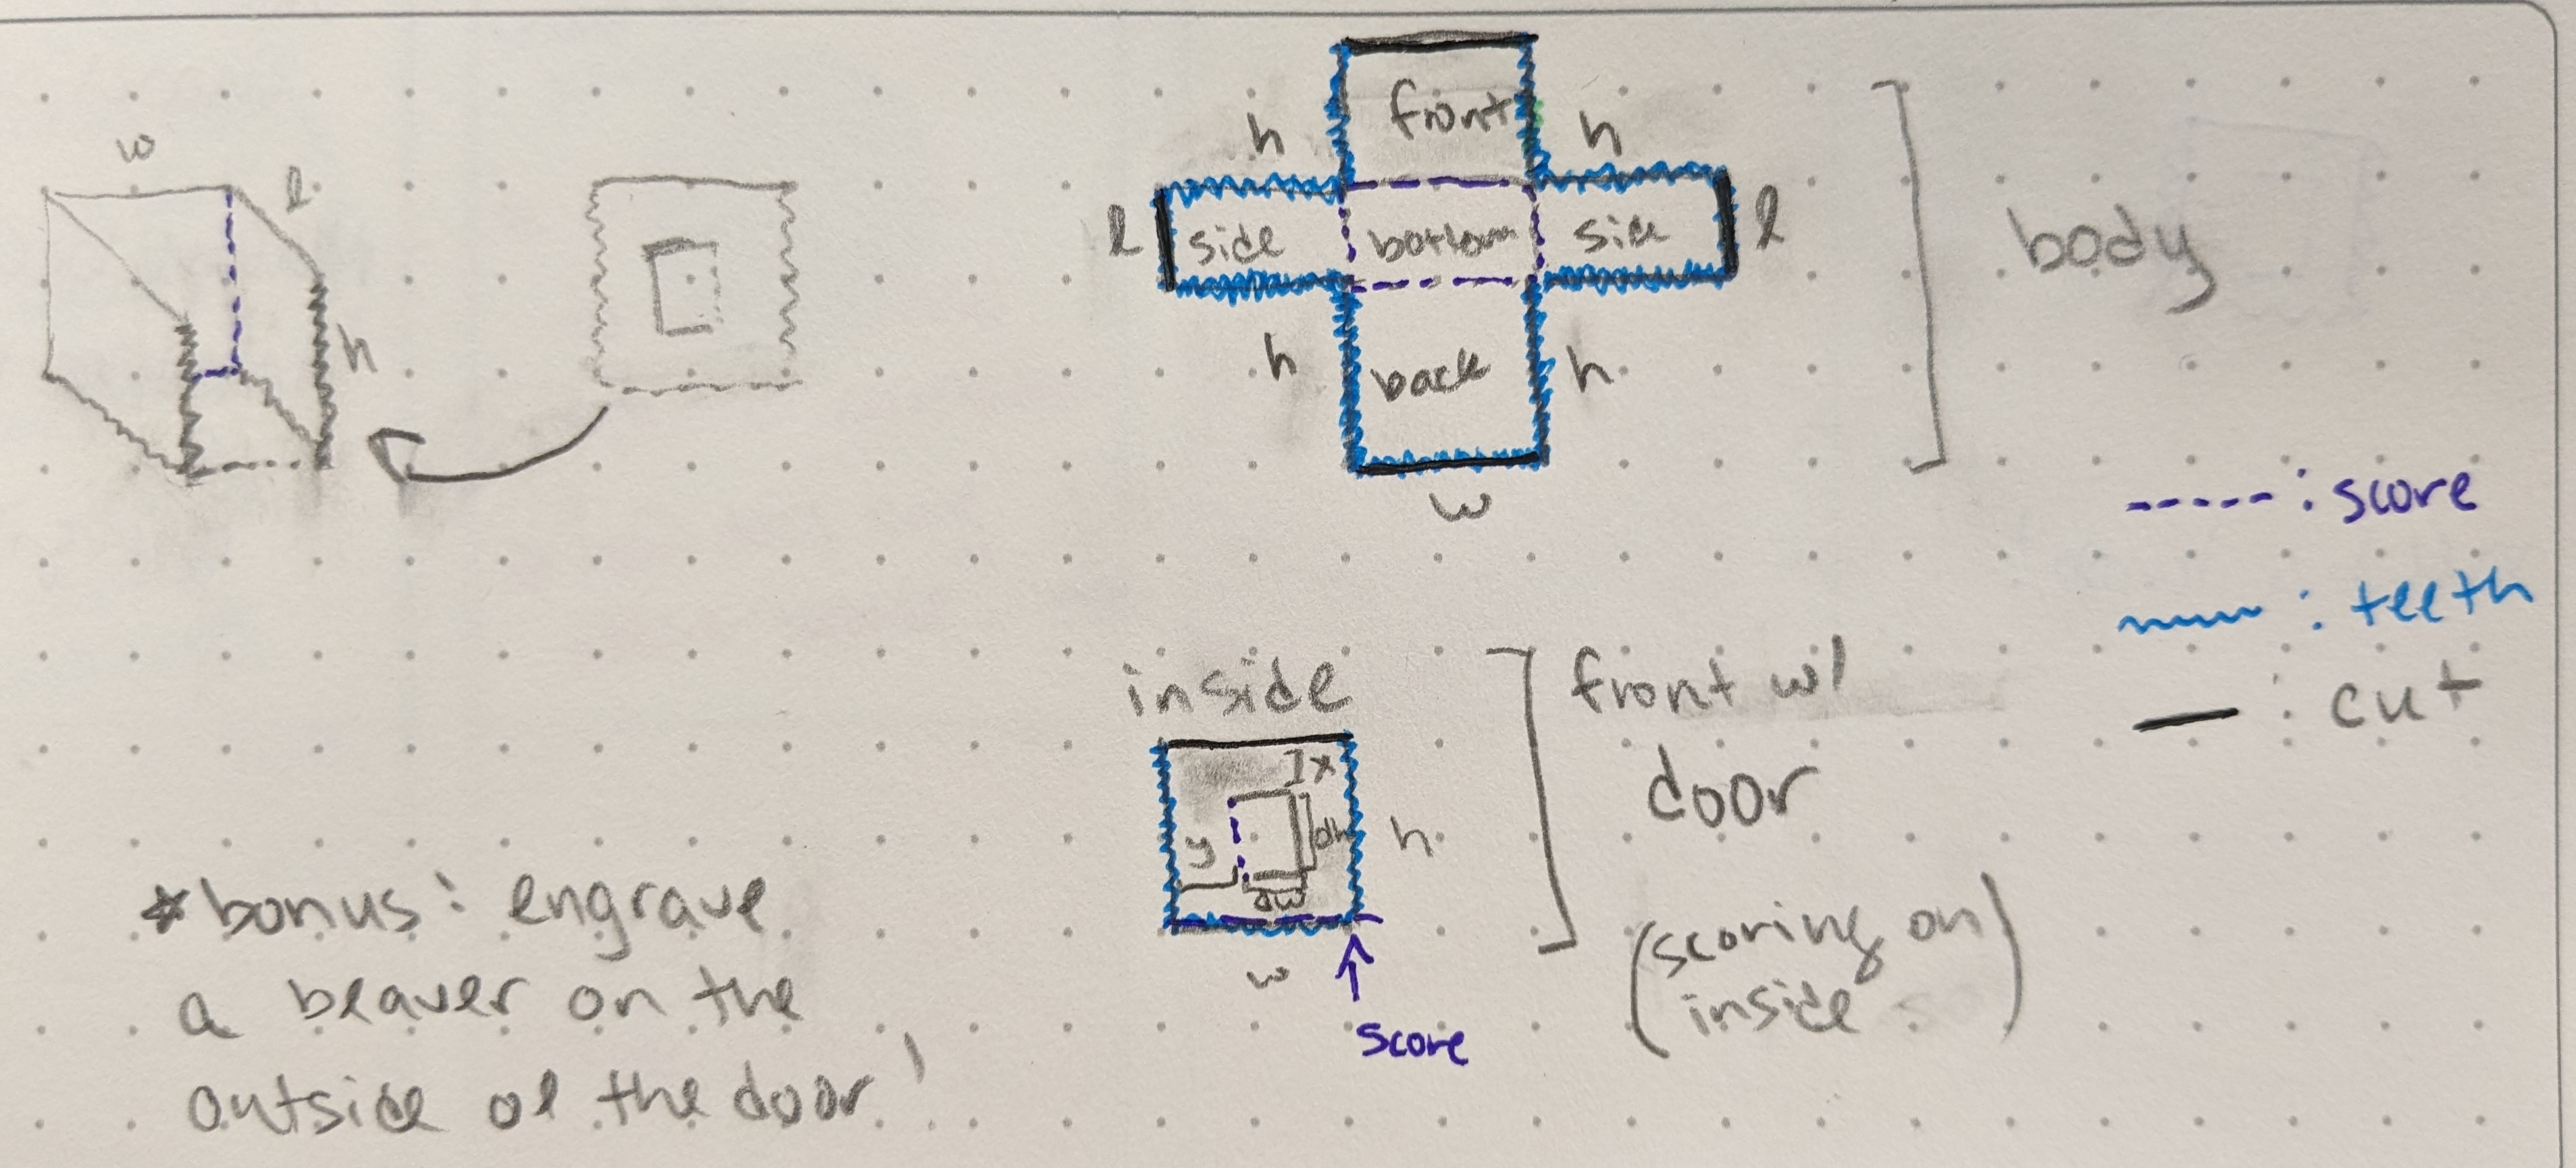 w
l
h
front
h
h
l
side
bottom
side
l
h
back
h
w
body
score
teeth
cut
inside
x
y
dh
dw
h
w
score
front w/
door
(scoring on
inside)
*bonus: engrave
a beaver on the
outside of the door!